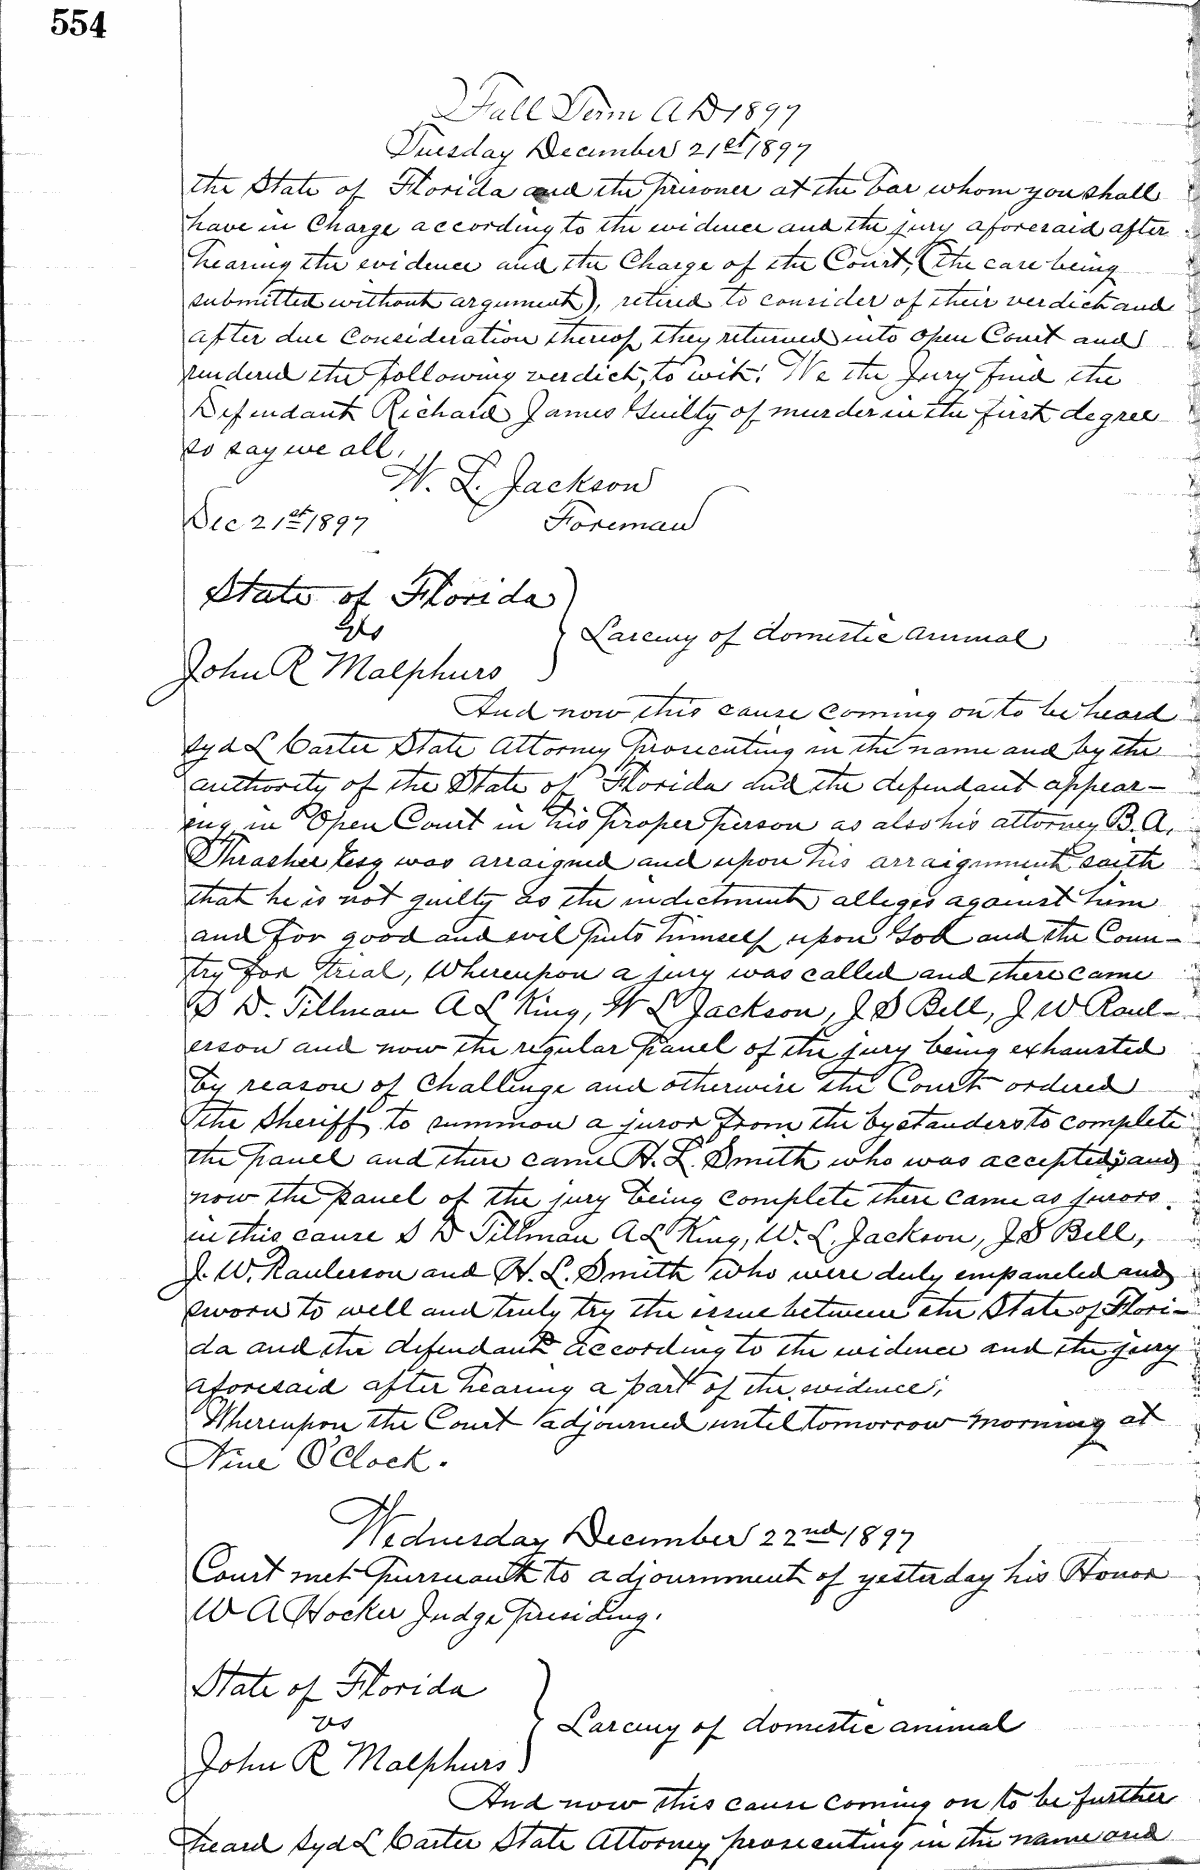 554
Fall Term A D 1897
Tuesday December 21st 1897
the State of Florida and the prisoner at the bar whom you shall
have in Charge according to the evidence and the jury aforesaid after
hearing the evidence and the Charge of the Court, (the case being
submitted without argument), retired to consider of their verdict and
after due consideration thereof they returned into open Court and
rendered the following verdict, to wit: We the Jury find the
Defendant Richard James Guilty of murder in the first degree
so say we all.
W. L. Jackson
Dec 21st 1897 Foreman
State of Florida
vs
Larceny of domestic animal
John R Malphurs
And now this cause coming on to be heard
Syd L Carter State Attorney prosecuting in the name and by the
authority of the State of Florida and the defendant appear-
ing in Open Court in his proper person as also his attorney B. A.
Thrasher Esq was arraigned and upon his arraignment saith
that he is not guilty as the indictment alleges against him
and for good and evil puts himself upon God and the Coun-
try for trial, Whereupon a jury was called and there came
S D. Tillman A L King, W L Jackson, J S Bell, J W Raul-
erson and now the regular panel of the jury being exhausted
by reason of challenge and otherwise the Court ordered
the Sheriff to summon a juror from the bystanders to complete
the panel and there came H. L. Smith who was accepted; and
now the panel of the jury being complete there came as jurors
in this cause S D Tillman A L King, W. L. Jackson, J S Bell,
J. W. Raulerson and H. L. Smith who were duly empaneled and
sworn to well and truly try the issue between the State of Flori-
da and the defendant according to the evidence and the jury
aforesaid after hearing a part of the evidence;
Whereupon the Court adjourned until tomorrow morning at
Nine O'Clock.
Wednesday December 22nd 1897
Court met pursuant to adjournment of yesterday his Honor
W A Hocker Judge presiding.
State of Florida
vs
Larceny of domestic animal
John R Malphurs
And now this cause coming on to be further
heard Syd L Carter State Attorney prosecuting in the name and